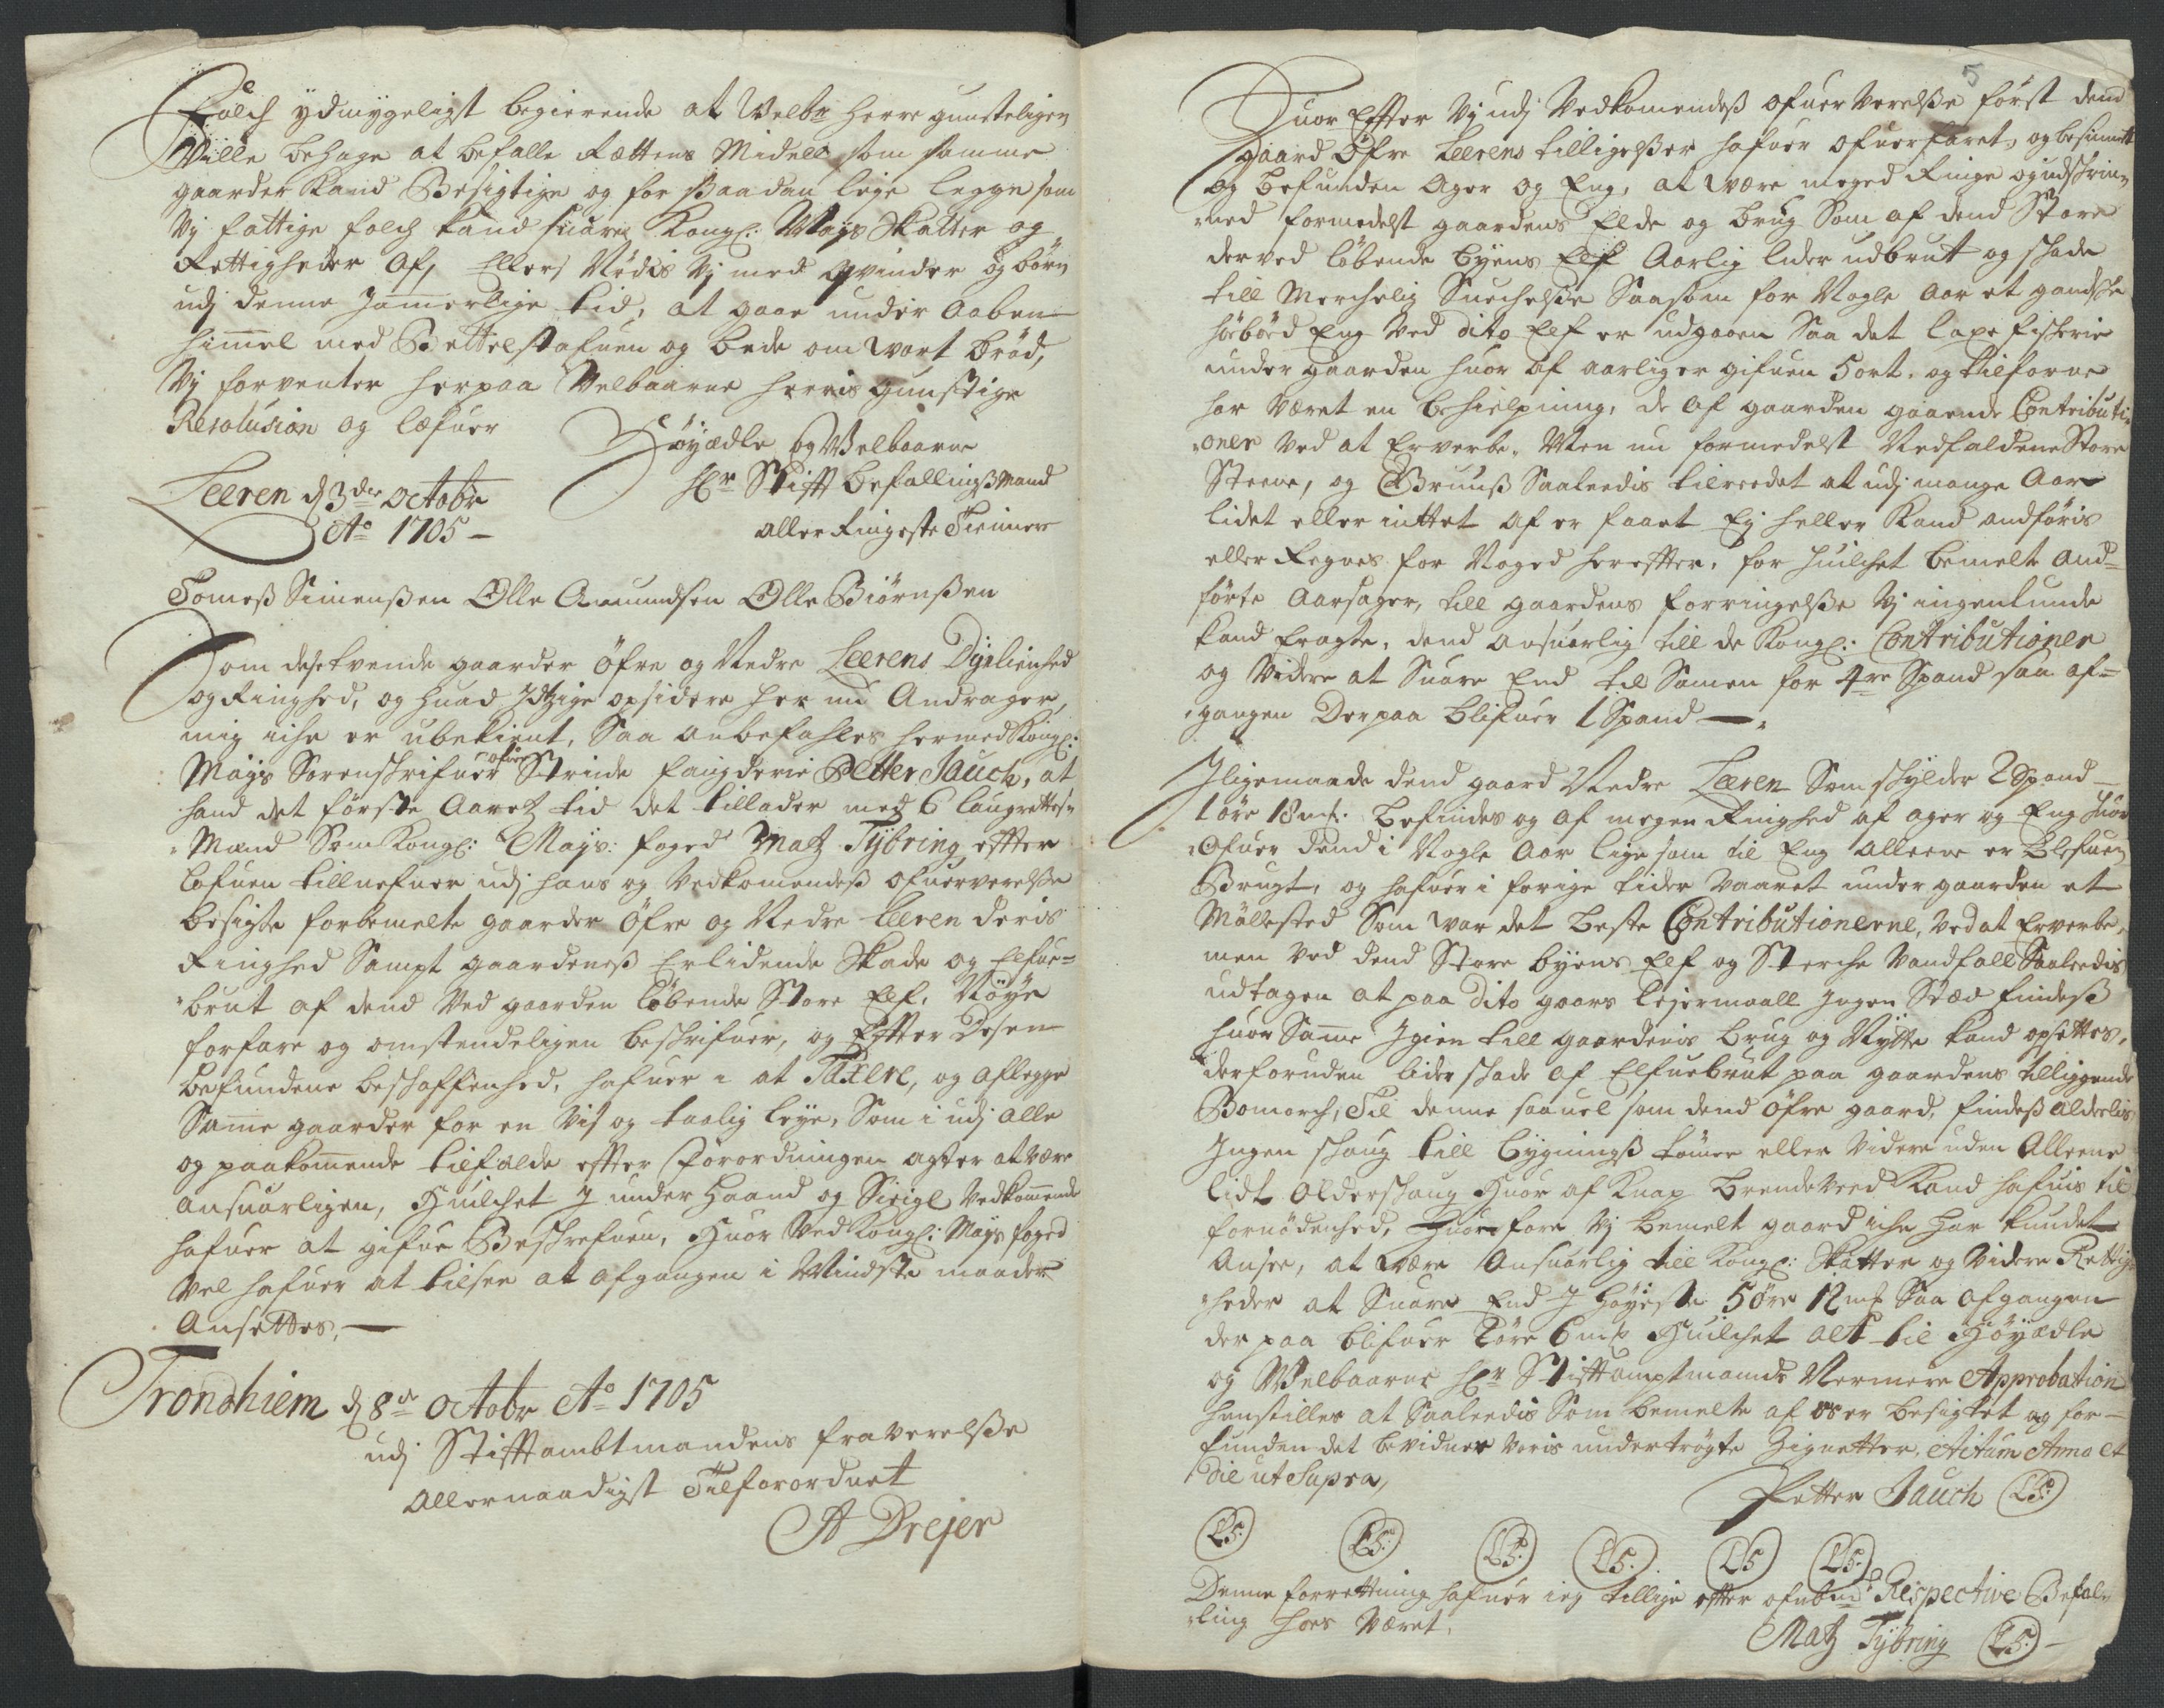 Folch ydmygeligst begierende at Welb: herre gunsteligen
Wille behage at befalle Rættens Midell som samme
gaarder Kand Besigtige og for Saadan leje legge som
Vj fattige folch kand suare Kongl: Mays Skatter og
Rettigheder af, Ellers Nödis Vj med Qvinder og börn
udj denne Jamerlige tid, at gaae under aaben
himel med Bettelstafuen og bede om wort bröd,
Vj forventer herpaa Velbaarne herris gunstige
Resolusion og læfuer
Höyædle og Welbaarne
Hr Stifft befallingsmand
aller Ringeste Tienner
Leeren d 3de octobr
Ao 1705 –
Tomess Simenssen Olle Amundsen Olle Biörnssen
Som desse tvende gaarder Öfre og Nedre Leerens Dyrlienhed
og Ringhed, og huad Jdtzige opsidere her nu Andrager,
mig iche er ubekient, Saa anbefahles hermed Kongl:
Mays Sorenschrifuer ofuer Strinde faugderie Petter Jauch, at
hand det förste Aaretz tid det tillader med 6 laugrettes-
Mand Som Kongl: Mays: foged Matz Tÿbring effter
Lofuen tillnefner udj hans og Vedkomendess ofuerverelsse
besigte forbemelte gaarder Öfre og Nedre Leeren deris
Ringhed Sampt gaardeness Erlidende Skade og Elfue-
brut af dend Ved gaarden löbende Store Elf, Nöye
forfare og omstendeligen beschrifuer, og Effter Desen
befundene beschaffenhed, hafuer i at Taxere, og aflegge
Same gaarder for en Vis og taalig leye, Som i udj alle
og paakomende tilfælde effter Forordningen agter at være
ansuarligen, Huilchet J under Haand og Seigl Vedkomende
hafuer at gifue Beschrefuen, Huor Ved Kongl: Mays foged
vel hafuer at tilsee at afgangen i Mindste maader
Ansettes, –
Trondhiem d 8de octobr Ao 1705
udj Stifftambtmandens fraverelsse
allernaadigst Tilforordnet
A Drejer
5
Huor Effter Vj udj Vedkomendess ofuerverelsse först dend
gaard Öfre Leerens tilligelsser hafuer ofuerfaret, og besinnett
og befunden Ager og Eng, at være meged Ringe og indschrin-
ned formedelst gaardens Elde og brug Som af dend Store
derved löbende byens Elf Aarlig lider udbrut og schade
till Merchelig Suechelsse Saasom for Nogle Aar et gandsche
Eng Ved dito Elf er udgaaen Saa det laxe fischerie
under gaarden huor af aarlig er gifuen 5 ort. og tilforne
har Været en behielpning, de af gaarden gaaende Contributi-
oner Ved at Erverbe, Men nu formedelst Nedfaldene Store
Steene, og Gruuss Saaledis tilreedet at udj mange Aar
lidet eller inttet af er faaet Ej heller Kand andföris
eller Regnes for Noged hereffter, for huilchet bemelte and-
förte Aarsager, till gaardens forringelsse Vj ingenlunde
kand Eragte, dend ansuarlig till de Kongl: Contributioner
og Videre at Suare End til Samen for 4re Spand saa af-
gangen Derpaa blifuer 1 Spand –
Jligemaade dend gaard Nedre Leeren Som schylder 2 Spand
1 öre 18 mk. befindes og af megen Ringhed af ager og Eng huor
Ofuer dend i Nogle Aar lige som til Eng alleene er blefuen
Brugt, og hafuer i forige tider Vaaret under gaarden et
Möllested Som war det beste Contributionerne, Ved at Erverbe,
men Ved dend Store byens Elf og Sterche Vandfall Saaledis
udtagen at paa dito gaars Lejermaall Jngen Stæd findess
huor Same Jgien till gaardenis brug og Nytte kand opsettes,
derforuden lider schade af Elfuebrut paa gaardens tilliggende
Bomarch, Til denne saauel som dend Öfre gaard, findess alderlis
Jngen schaug till bygningss tömer eller Videre uden Alleene
lidt olderschaug Huor af Knap brendeveed Kand hafuis til
fornödenhed, Huorfore Vj bemelt gaard iche har kundet
Ansee, at være Ansuarlig till Kongl: Skatter og Videre Rettig-
heder at Suare End J höyeste 5 öre 12 mk Saa afgangen
der paa blifuer 2 öre 6 mk Huilchet alt til Höyædle
og Welbaarne Hr Stifftamptmands Nermere Approbation
henstilles at Saaledis Som bemelte af os er besigtet og be-
funden det bevidner Voris undertrögte Zignetter, Actum Anno et
Die ut Supra,
Petter Jauch (LS:)
(LS:) (LS:) (LS:) (LS.) (LS) (LS:)
Denne forrettning hafuer ieg tillige effter ofnbm Respective Befal-
ling hoes Været.
Matz Tÿbring (LS:) –